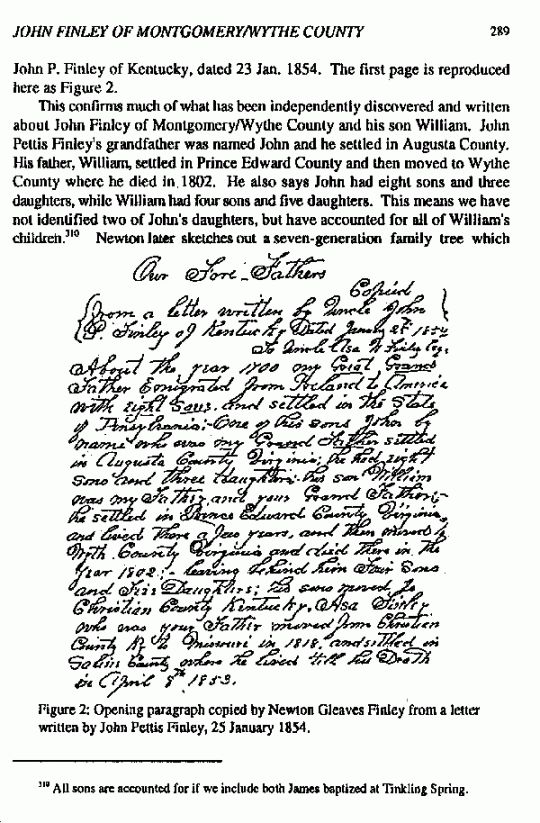 JOHN FINLEY OF MONTGOMERY/WYTHE COUNTY 289
John P. Finley of Kentucky, dated 23 Jan. 1854. The first page is reproduced
here as Figure 2.
This confirms much of what has been independently discovered and written
about John Finley of Montgomery/Wythe County and his son William. John
Pettis Finley's grandfather was named John and he settled in Augusta County.
His father, William, settled in Prince Edward County and then moved to Wythe
County where he died in 1802. He also says John had eight sons and three
daughters, while William had four sons and five daughters. This means we have
not identified two of John's daughters, but have accounted for all of William's
children.³¹⁰ Newton later sketches out a seven-generation family tree which
Our Fore-Fathers
Copied
from a letter written by Uncle John
P. Finley of Kentucky Dated 1854
To Uncle Asa
About the year 1700 my Great Grand
Father Emigrated from Ireland to America
with eight Sons, and settled in the State
of Pensylvania; One of his sons John by
name who was my Grand Father settled
in Augusta County Virginia; he had eight
Sons and three daughters: his son William
was my Father and your Grand Father;
he settled in Prince Edward County Virginia,
and lived there a few years, and then moved to
Wyth County Virginia and died there in the
year 1802; leaving behind him Four Sons
and Daughters; his sons moved to
Christian County Kentucky, Asa Finley
who was your Father moved from Christian
County Ky to Missouri in 1818, and settled in
Salin County where he lived till his Death
in April 8th 1853.
Figure 2: Opening paragraph copied by Newton Gleaves Finley from a letter
written by John Pettis Finley, 25 January 1854.
³¹⁰ All sons are accounted for if we include both James baptized at Tinkling Spring.